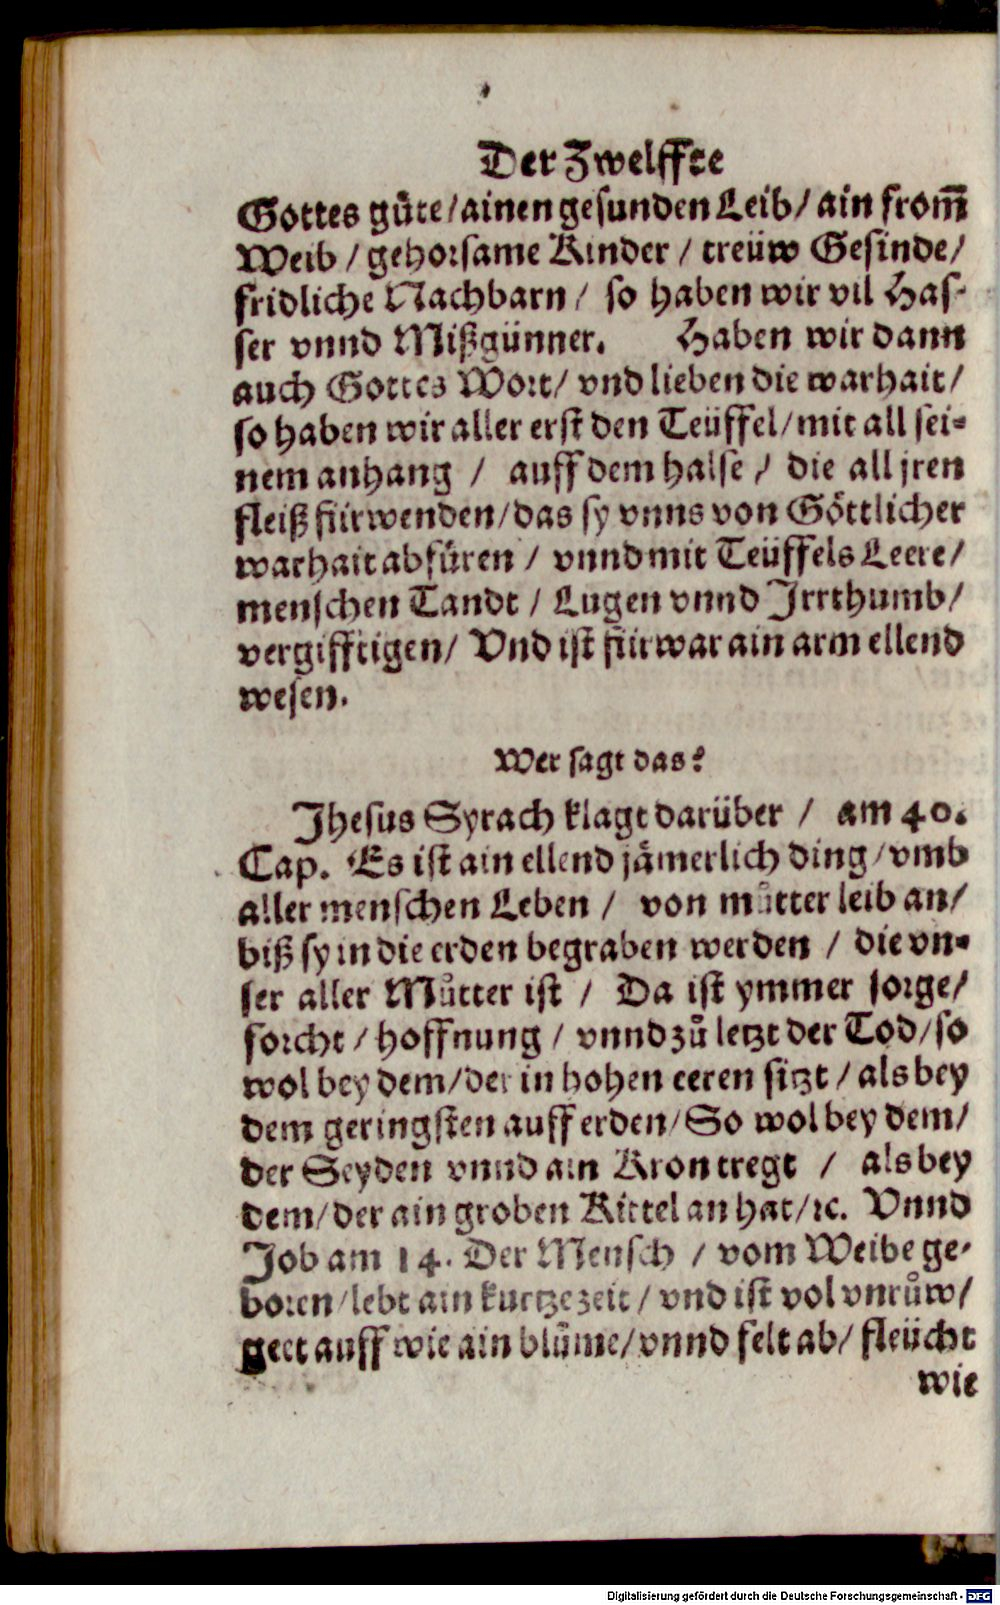 Der Zwelffte
Gottes guͤte/ainen gesunden Leib/ ain from̃
Weib / gehorsame Kinder / treüw Gesinde/
fridliche Nachbarn / so haben wir vil Has-
ser vnnd Mißgünner. Haben wir dann
auch Gottes Wort/ vnd lieben die warhait/
so haben wir aller erst den Teüffel/mit all sei-
nem anhang / auff dem halse / die all jren
fleiß fürwenden/das sy vnns von Göttlicher
warhait abfuͤren / vnnd mit Teüffels Leere/
menschen Tandt / Lugen vnnd Jrrthumb/
vergifftigen/ Vnd ist fürwar ain arm ellend
wesen.
Wer sagt das?
Jhesus Syrach klagt darüber / am 40.
Cap. Es ist ain ellend jämerlich ding/vmb
aller menschen Leben / von muͤtter leib an/
biß sy in die erden begraben werden / die vn-
ser aller Muͦtter ist / Da ist ymmer sorge/
forcht / hoffnung / vnnd zuͦ letzt der Tod/so
wol bey dem/der in hohen eeren sitzt / als bey
dem geringsten auff erden/So wol bey dem/
der Seyden vnnd ain Kron tregt / als bey
dem/der ain groben Kittel an hat/ꝛc. Vnnd
Job am 14. Der Mensch / vom Weibe ge-
boren/lebt ain kurtze zeit / vnd ist vol vnruͦw/
geet auff wie ain bluͦme/vnnd felt ab/ fleücht
wie
Digitalisierung gefördert durch die Deutsche Forschungsgemeinschaft - DFG